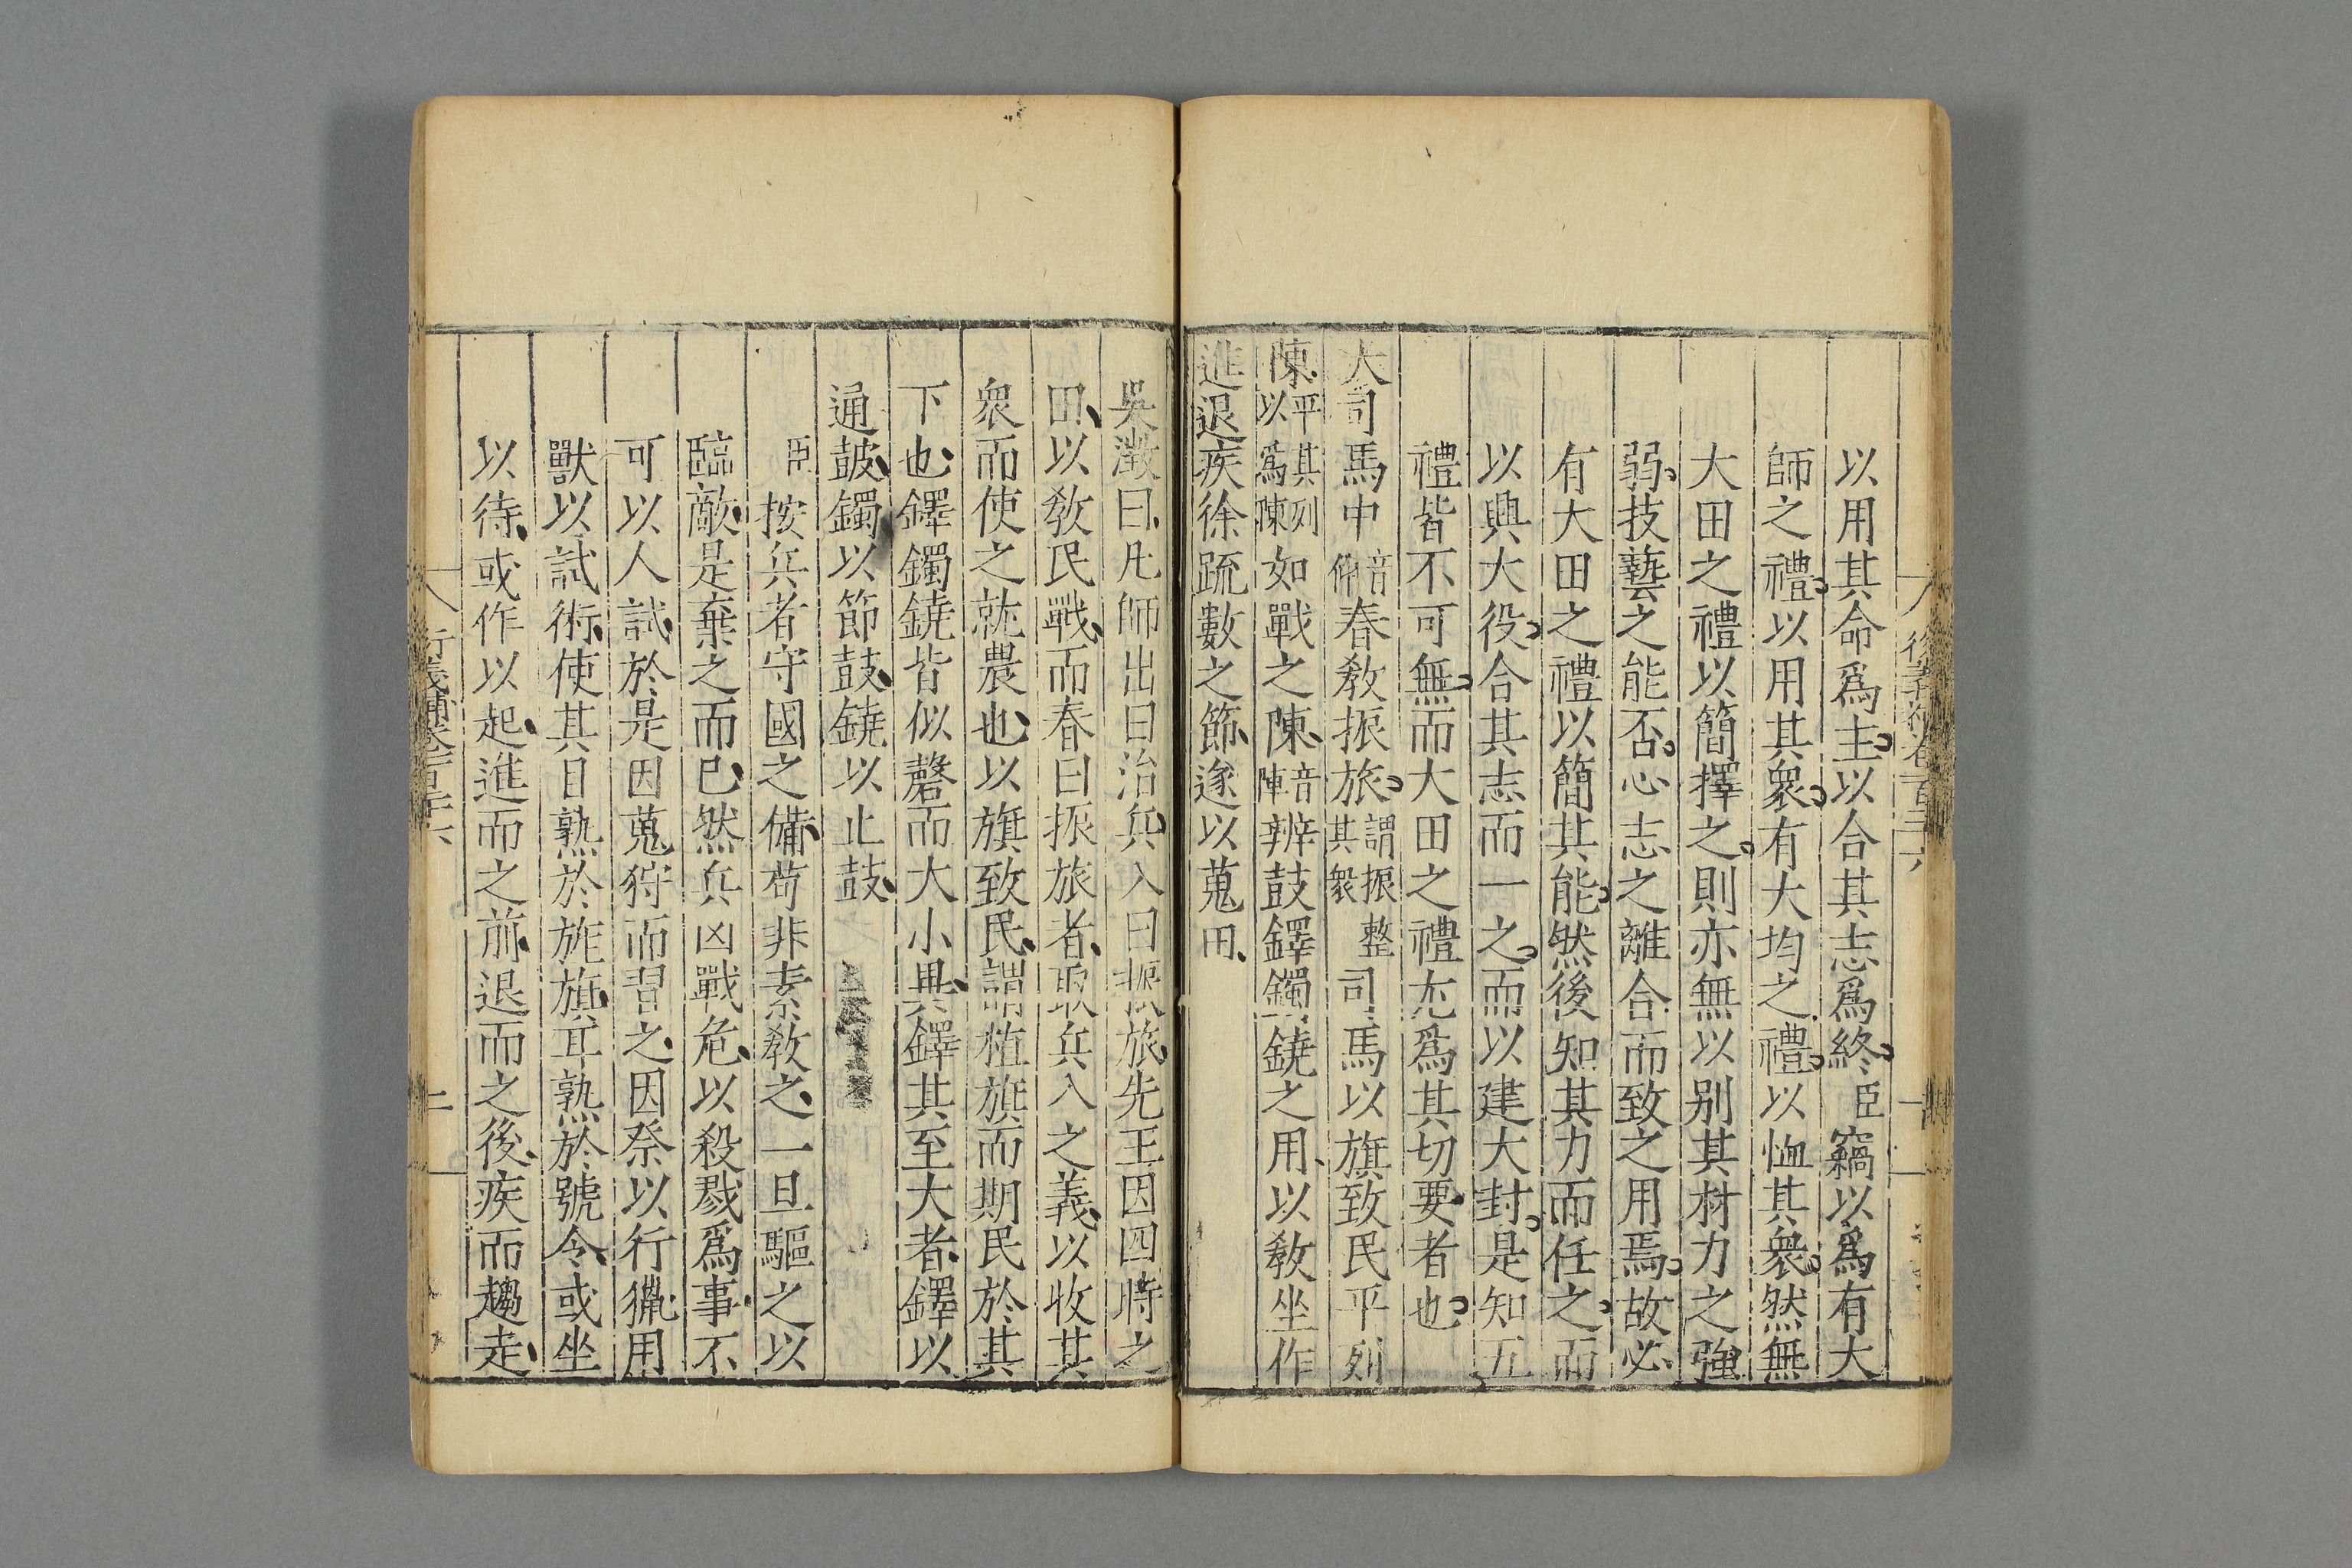 以用其命爲主以合其志爲終臣竊以爲有大
師之禮以用其衆有大均之禮以恤其衆然無
大田之禮以簡擇之則亦無以别其材力之強
弱技藝之能否心志之離合而致之用焉故必
有大田之禮以簡其能然後知其力而任之而
以興大役合其志而一之而以建大封是知五
禮皆不可無而大田之禮尤爲其切要者也
大司馬中音仲春教振旅謂振整其衆司馬以旗致民平列
陳平其列以爲陳如戰之陳音陣辨鼓鐸鐲鐃之用以教坐作
進退疾徐疏數之節遂以蒐田
吳澂曰凡師出曰治兵入曰振旅先王因四時之
田以教民戰而春曰振旅者取兵入之義以收其
衆而使之就農也以旗致民謂植旗而期民於其
下也鐸鐲鐃皆似磬而大小異鐸其至大者鐸以
通鼓鐲以節鼓鐃以止鼓
臣按兵者守國之備苟非素教之一旦驅之以
臨敵是棄之而已然兵凶戰危以殺戮爲事不
可以人試於是因蒐狩而習之因祭以行獵用
獸以試術使其目熟於旌旗耳熟於號令或坐
以待或作以起進而之前退而之後疾而趨走